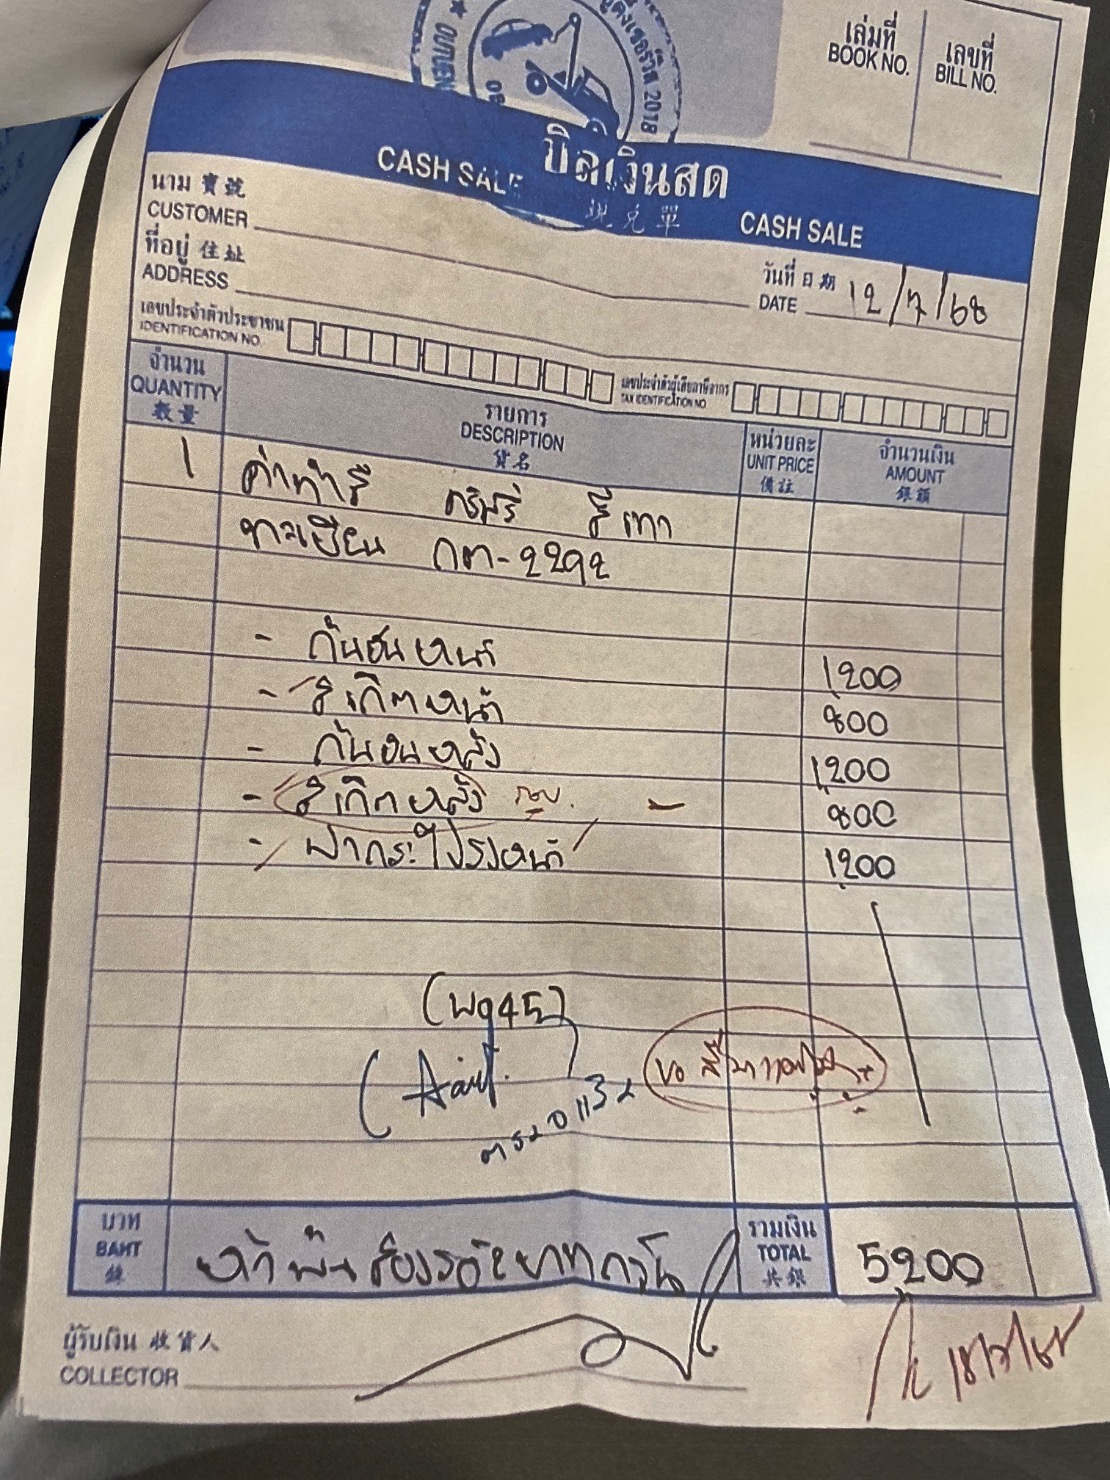 2018
เล่มที่ เลขที่
BOOK NO. BILL NO.
บิลเงินสด
CASH SALE 現兌單 CASH SALE
นาม 寶號
CUSTOMER
ที่อยู่ 住址
ADDRESS
วันที่ 日期
DATE 12/7/68
เลขประจำตัวประชาชน
IDENTIFICATION NO.
เลขประจำตัวผู้เสียภาษีอากร
TAX IDENTIFICATION NO
จำนวน รายการ หน่วยละ จำนวนเงิน
QUANTITY DESCRIPTION UNIT PRICE AMOUNT
數量 貨名 備註 銀額
1 ค่าทำสี สีเทา
ทะเบียน กต-2292
- กันชนหน้า 1200
- สเกิตหน้า 800
- กันชนหลัง 1200
- สเกิตหลัง 800
- ฝากระโปรงหน้า 1200
บาท รวมเงิน
BAHT TOTAL 5200
銖 共銀
ห้าพันสองร้อยบาทถ้วน
ผู้รับเงิน 收貨人
COLLECTOR
18/7/68